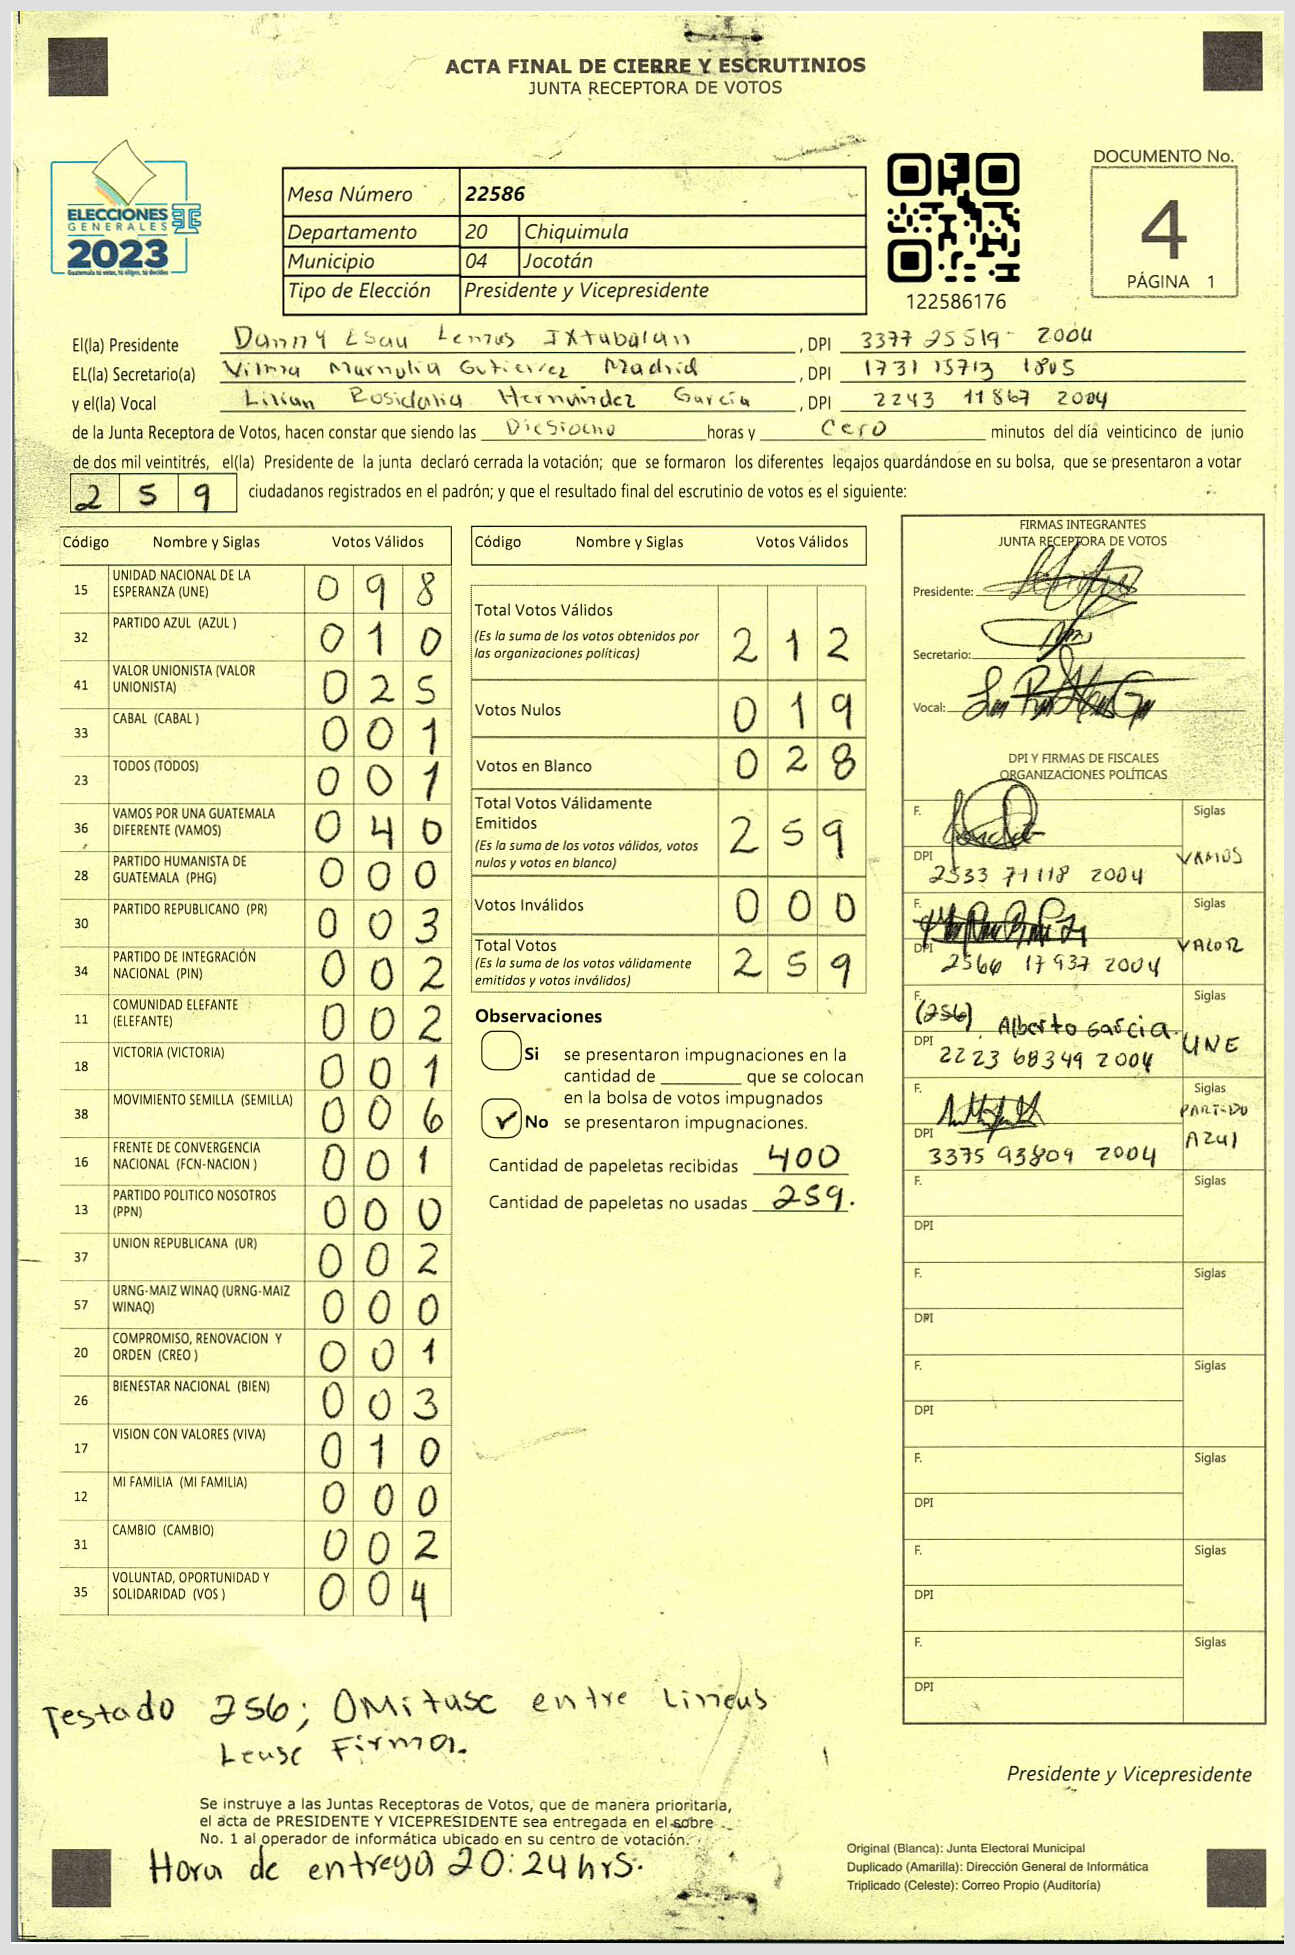 ACTA FINAL DE CIERRE Y ESCRUTINIOS
JUNTA RECEPTORA DE VOTOS
ELECCIONES
GENERALES
2023
Guatemala tú votas, tú eliges, tú decides
Mesa Número 22586
Departamento 20 Chiquimula
Municipio 04 Jocotán
Tipo de Elección Presidente y Vicepresidente
122586176
DOCUMENTO No.
4
PÁGINA 1
El(la) Presidente Danny Esau Lemus Ixtabalan, DPI 3377 25519 2004
EL(la) Secretario(a) Vilma Marnolia Gutierrez Madrid, DPI 1731 15713 1805
y el(la) Vocal Lilian Rosidalia Hernández García, DPI 2243 11867 2004
de la Junta Receptora de Votos, hacen constar que siendo las Diesiocho horas y Cero minutos del día veinticinco de junio
de dos mil veintitrés, el(la) Presidente de la junta declaró cerrada la votación; que se formaron los diferentes legajos guardándose en su bolsa, que se presentaron a votar
259 ciudadanos registrados en el padrón; y que el resultado final del escrutinio de votos es el siguiente:
Código Nombre y Siglas Votos Válidos
15 UNIDAD NACIONAL DE LA ESPERANZA (UNE) 098
32 PARTIDO AZUL (AZUL ) 010
41 VALOR UNIONISTA (VALOR UNIONISTA) 025
33 CABAL (CABAL ) 001
23 TODOS (TODOS) 001
36 VAMOS POR UNA GUATEMALA DIFERENTE (VAMOS) 040
28 PARTIDO HUMANISTA DE GUATEMALA (PHG) 000
30 PARTIDO REPUBLICANO (PR) 003
34 PARTIDO DE INTEGRACIÓN NACIONAL (PIN) 002
11 COMUNIDAD ELEFANTE (ELEFANTE) 002
18 VICTORIA (VICTORIA) 001
38 MOVIMIENTO SEMILLA (SEMILLA) 006
16 FRENTE DE CONVERGENCIA NACIONAL (FCN-NACION ) 001
13 PARTIDO POLITICO NOSOTROS (PPN) 000
37 UNION REPUBLICANA (UR) 002
57 URNG-MAIZ WINAQ (URNG-MAIZ WINAQ) 000
20 COMPROMISO, RENOVACION Y ORDEN (CREO ) 001
26 BIENESTAR NACIONAL (BIEN) 003
17 VISION CON VALORES (VIVA) 010
12 MI FAMILIA (MI FAMILIA) 000
31 CAMBIO (CAMBIO) 002
35 VOLUNTAD, OPORTUNIDAD Y SOLIDARIDAD (VOS ) 004
Código Nombre y Siglas Votos Válidos
Total Votos Válidos 212
(Es la suma de los votos obtenidos por
las organizaciones políticas)
Votos Nulos 019
Votos en Blanco 028
Total Votos Válidamente
Emitidos 259
(Es la suma de los votos válidos, votos
nulos y votos en blanco)
Votos Inválidos 000
Total Votos 259
(Es la suma de los votos válidamente
emitidos y votos inválidos)
Observaciones
Si se presentaron impugnaciones en la
cantidad de ________ que se colocan
en la bolsa de votos impugnados
✓ No se presentaron impugnaciones.
Cantidad de papeletas recibidas 400
Cantidad de papeletas no usadas 259.
FIRMAS INTEGRANTES
JUNTA RECEPTORA DE VOTOS
Presidente:
Secretario:
Vocal:
DPI Y FIRMAS DE FISCALES
ORGANIZACIONES POLÍTICAS
F. Siglas
DPI 2533 71118 2004 VAMOS
F. Siglas
DPI 2566 17937 2004 VALOR
F. (256) Alberto García Siglas
DPI 2223 68349 2004 UNE
F. Siglas
DPI 3375 93809 2004 PARTIDO AZUl
F. Siglas
DPI
F. Siglas
DPI
F. Siglas
DPI
F. Siglas
DPI
F. Siglas
DPI
F. Siglas
DPI
Testado 256; OMitase entre Lineas
Lease Firma.
Presidente y Vicepresidente
Se instruye a las Juntas Receptoras de Votos, que de manera prioritaria,
el acta de PRESIDENTE Y VICEPRESIDENTE sea entregada en el sobre
No. 1 al operador de informática ubicado en su centro de votación.
Hora de entrega 20:24 hrs.
Original (Blanca): Junta Electoral Municipal
Duplicado (Amarilla): Dirección General de Informática
Triplicado (Celeste): Correo Propio (Auditoría)